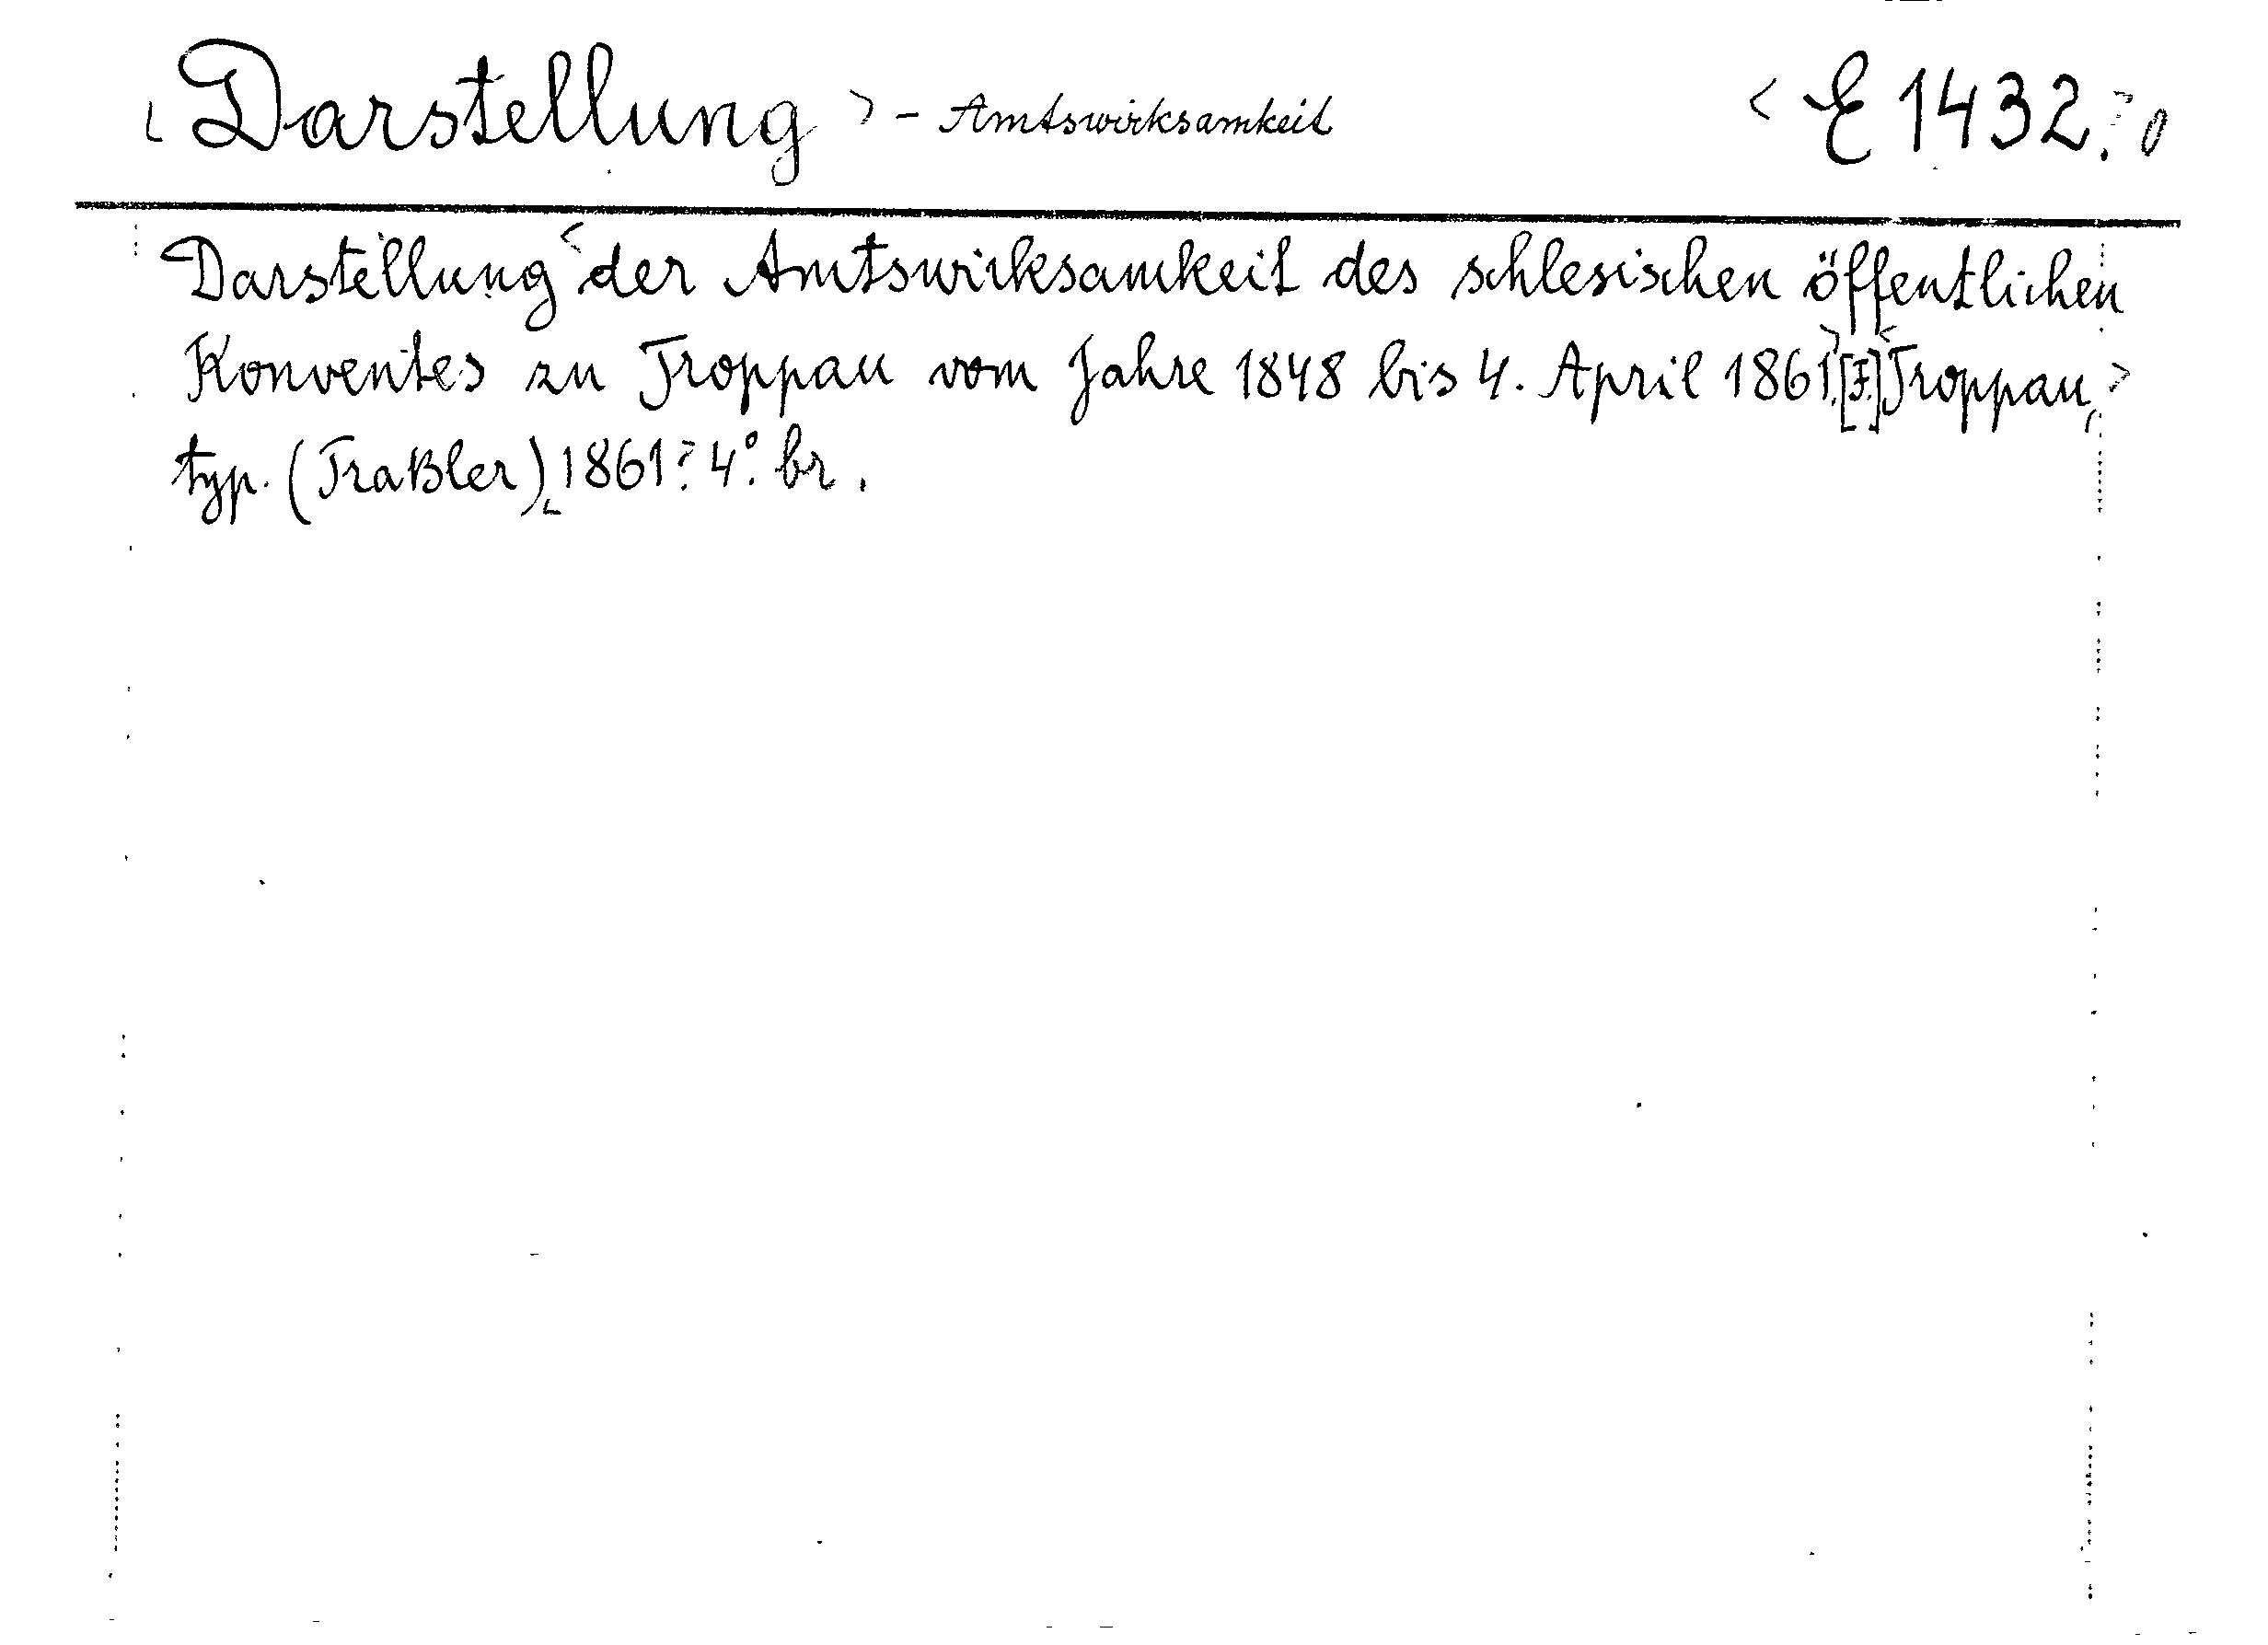 <Darstellung> - Amtswirksamkeit <E 1432.> 0
Darstellung <der Amtswirksamkeit des schlesischen öffentlichen
Konventes zu Troppau vom Jahre 1848 bis 4. April 1861.> [I.] <Troppau,>
typ. (Traßler), <1861.> 4°. br.